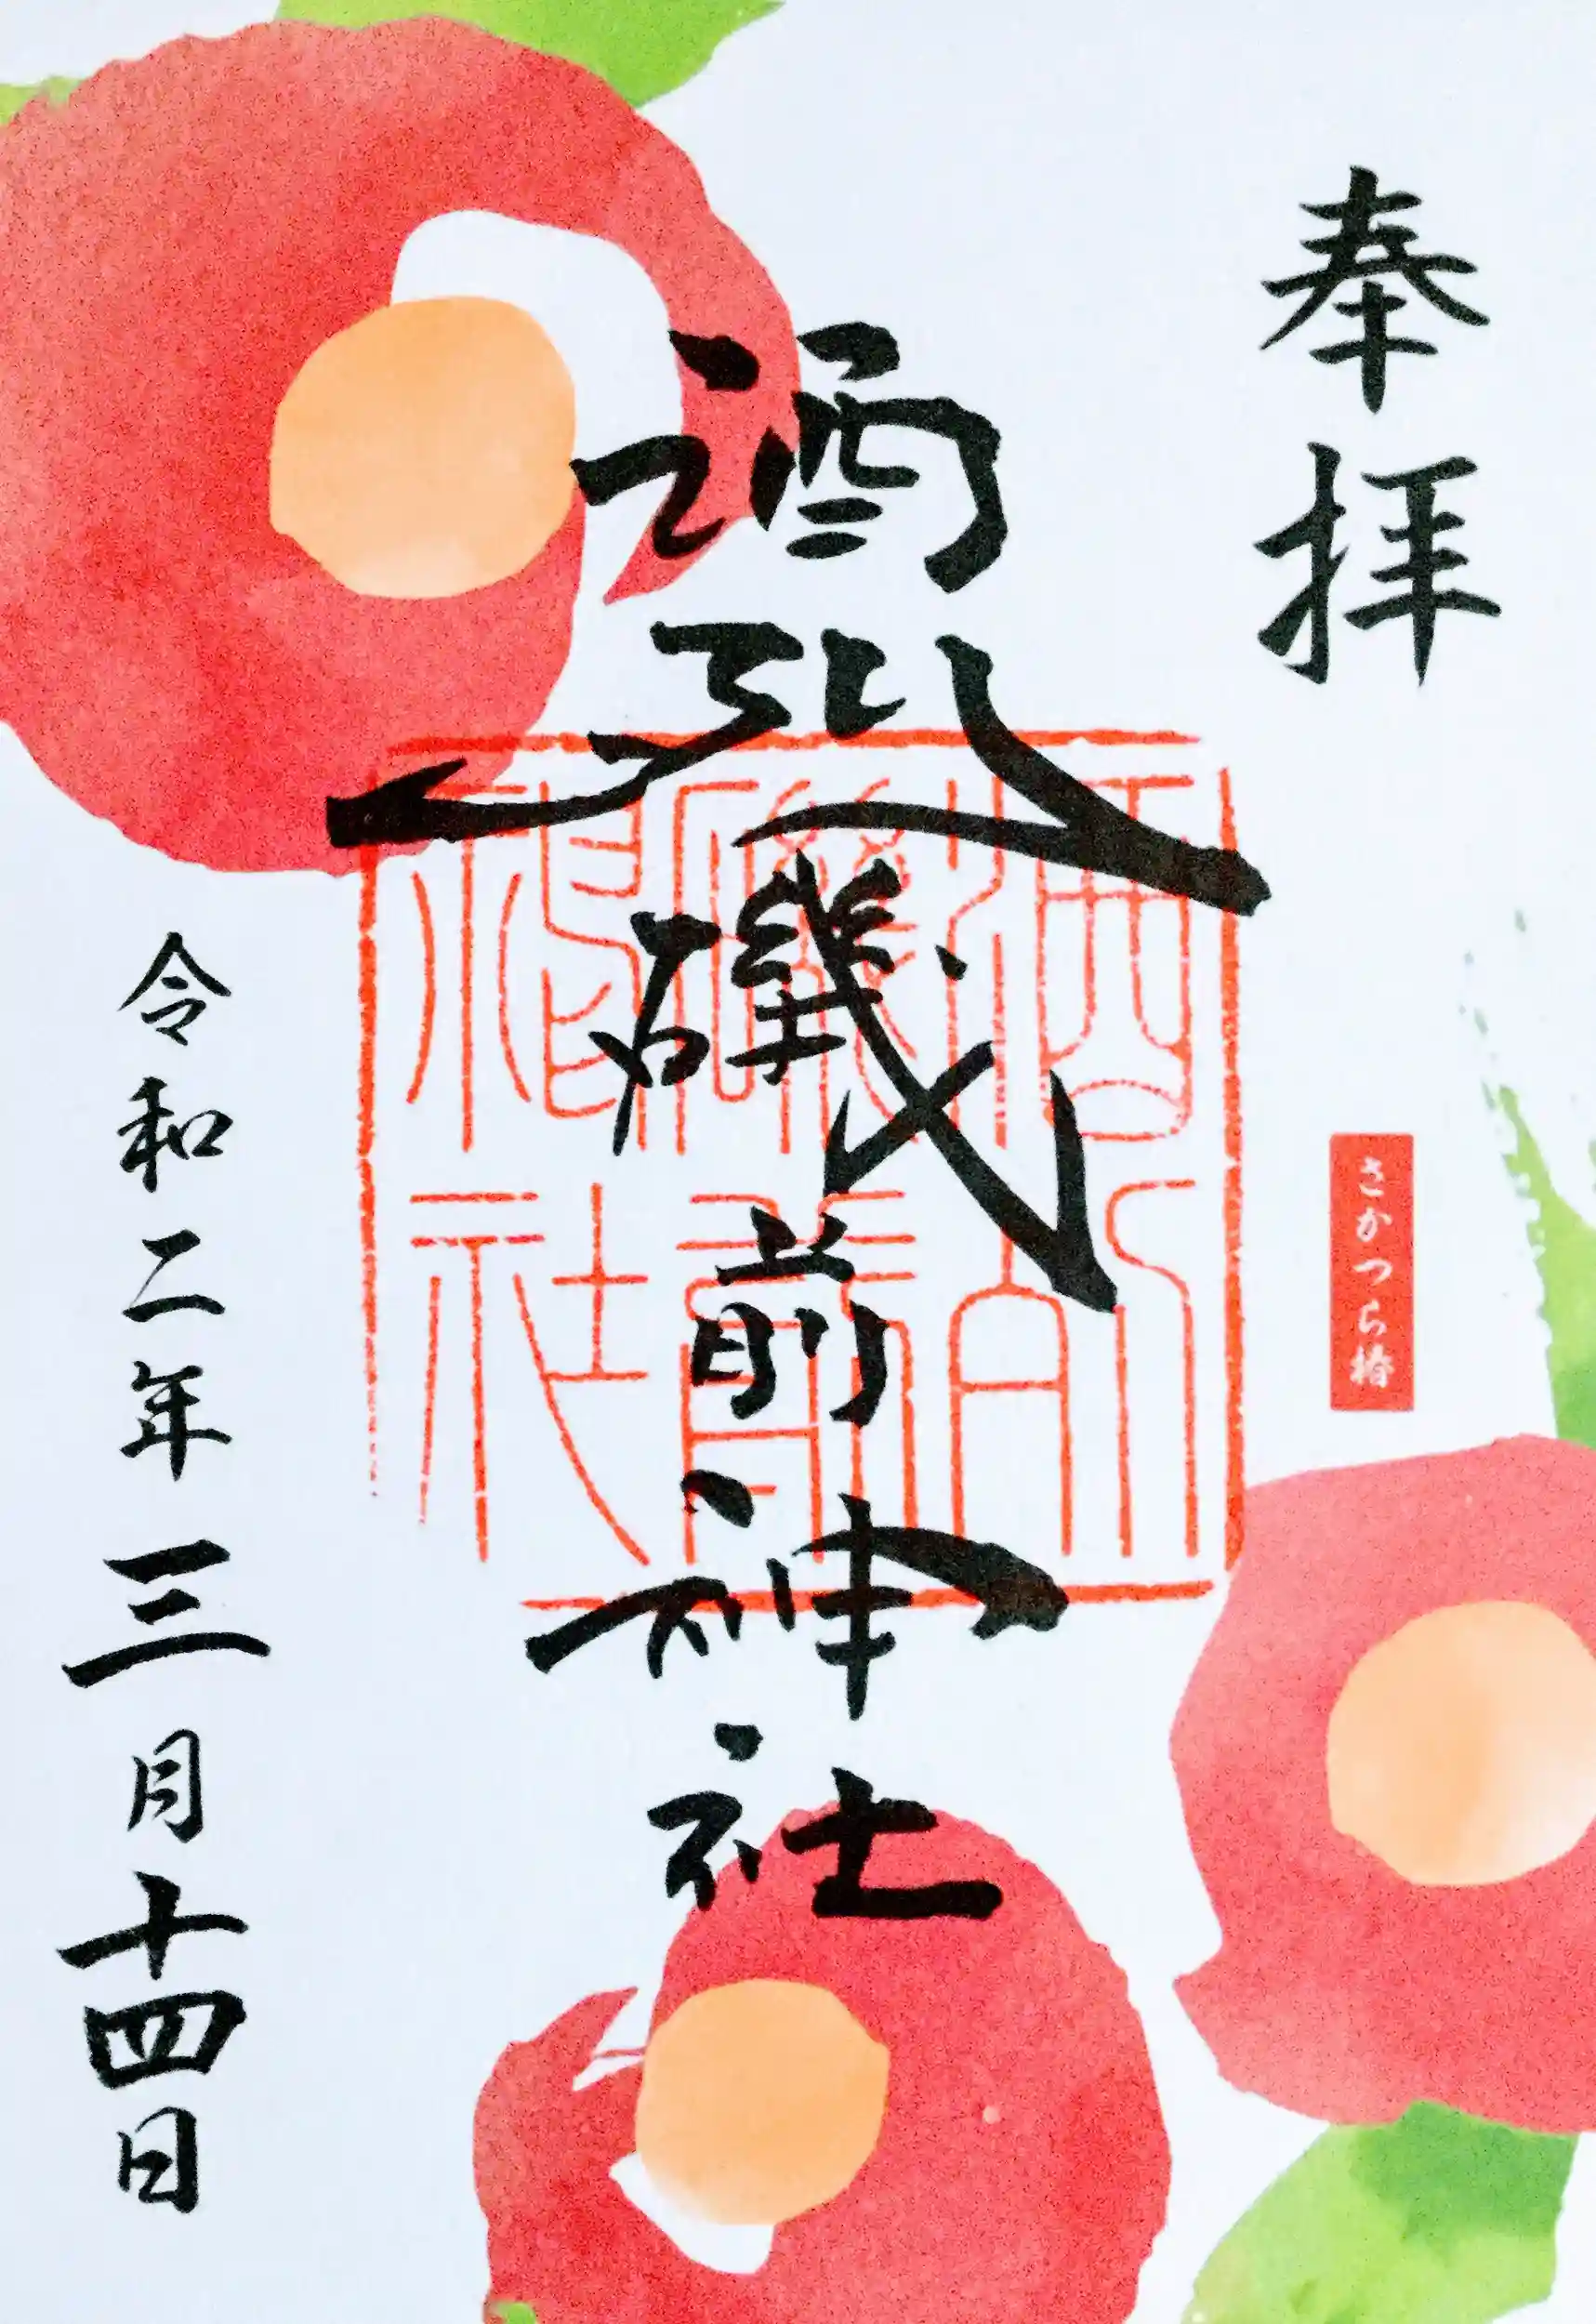 奉拝
さかつら椿
酒列磯前神社
酒列
磯前
神社
令和二年三月十四日